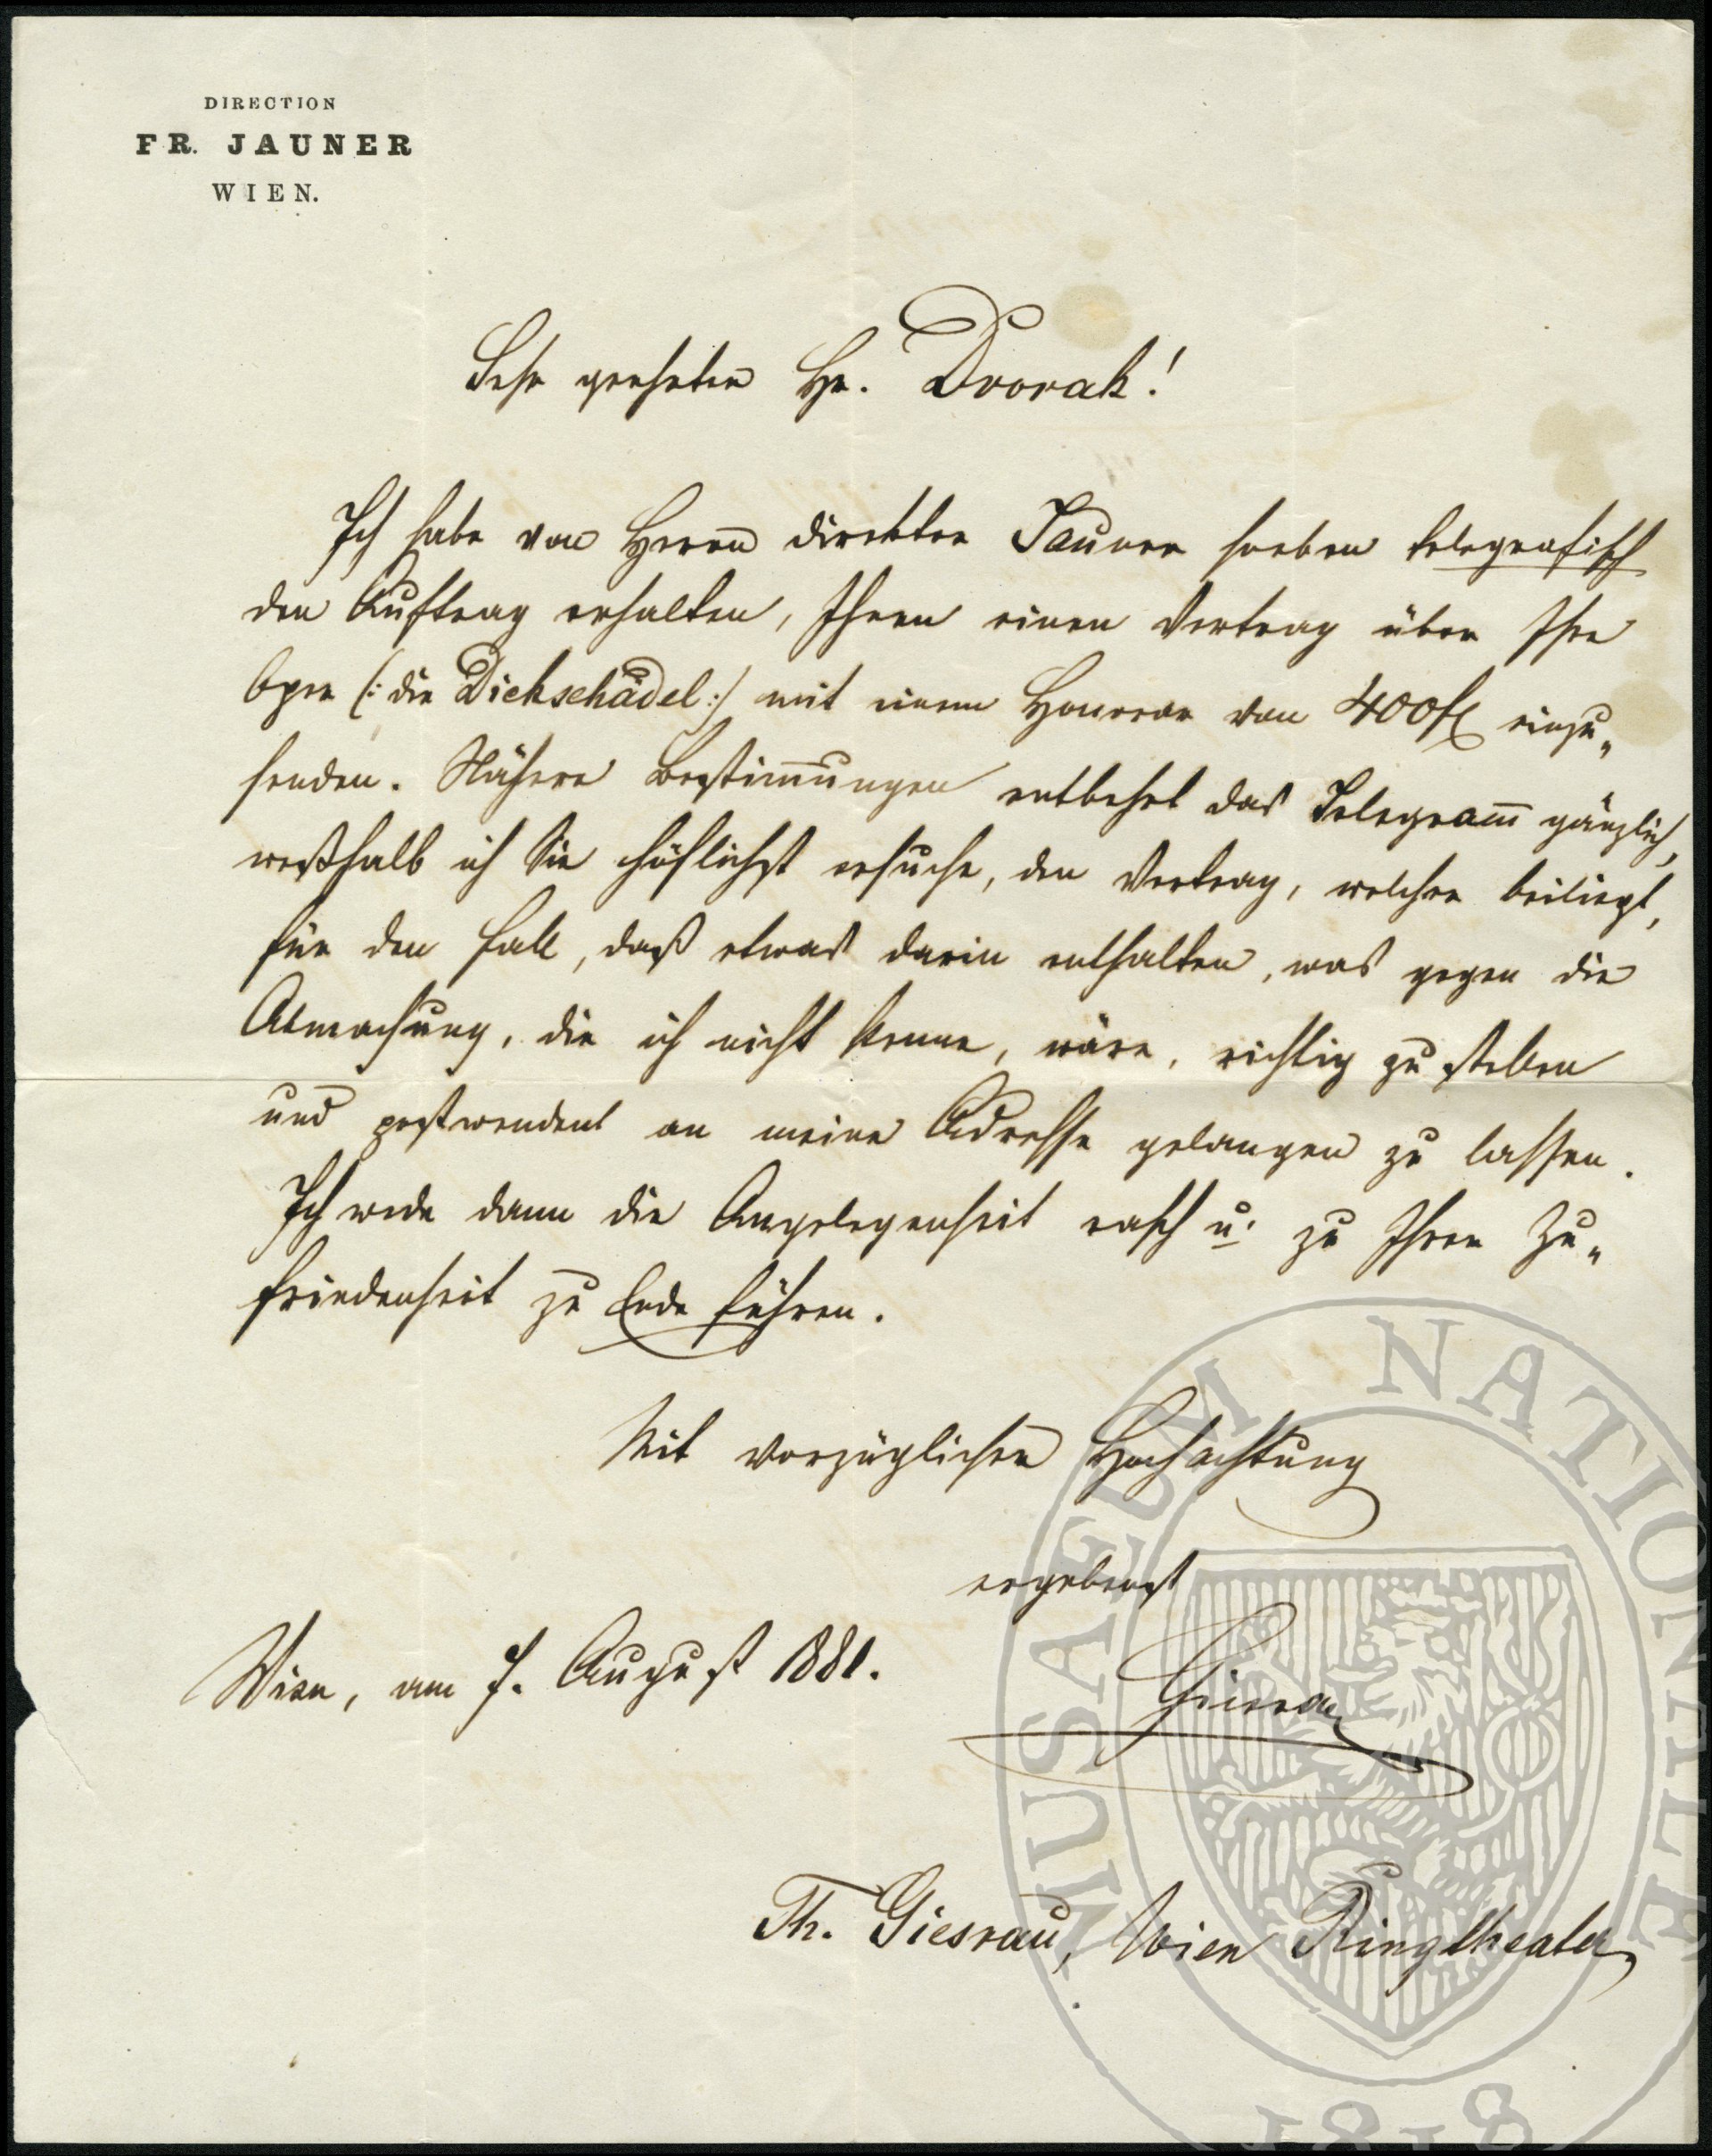 DIRECTION
FR. JAUNER
WIEN.
Sehr geehrter Hr. Dvorak!
Ich habe von Herrn Direktor Jauner soeben telegrafisch
den Auftrag erhalten, Ihnen einen Vertrag über Ihre
Oper (: die Dickschädel :) mit einem Honorar von 400 fl einzu„
senden. Nähere Bestim̄ungen entbehrt das Telegram̄ gänzlich,
weßhalb ich Sie höflichst ersuche, den Vertrag, welcher beiliegt,
für den Fall, daß etwas darin enthalten, was gegen die
Abmachung, die ich nicht kenne, wäre, richtig zu stellen
und postwendent an meine Adresse gelangen zu lassen.
Ich werde dann die Angelegenheit rasch u. zu Ihrer Zu„
friedenheit zu Ende führen.
Mit vorzüglicher Hochachtung
ergebenst
Wien, am 7. August 1881.
Giesrau
Th. Giesrau, Wien Ringtheater
MUSAEUM NATIONALE
1818